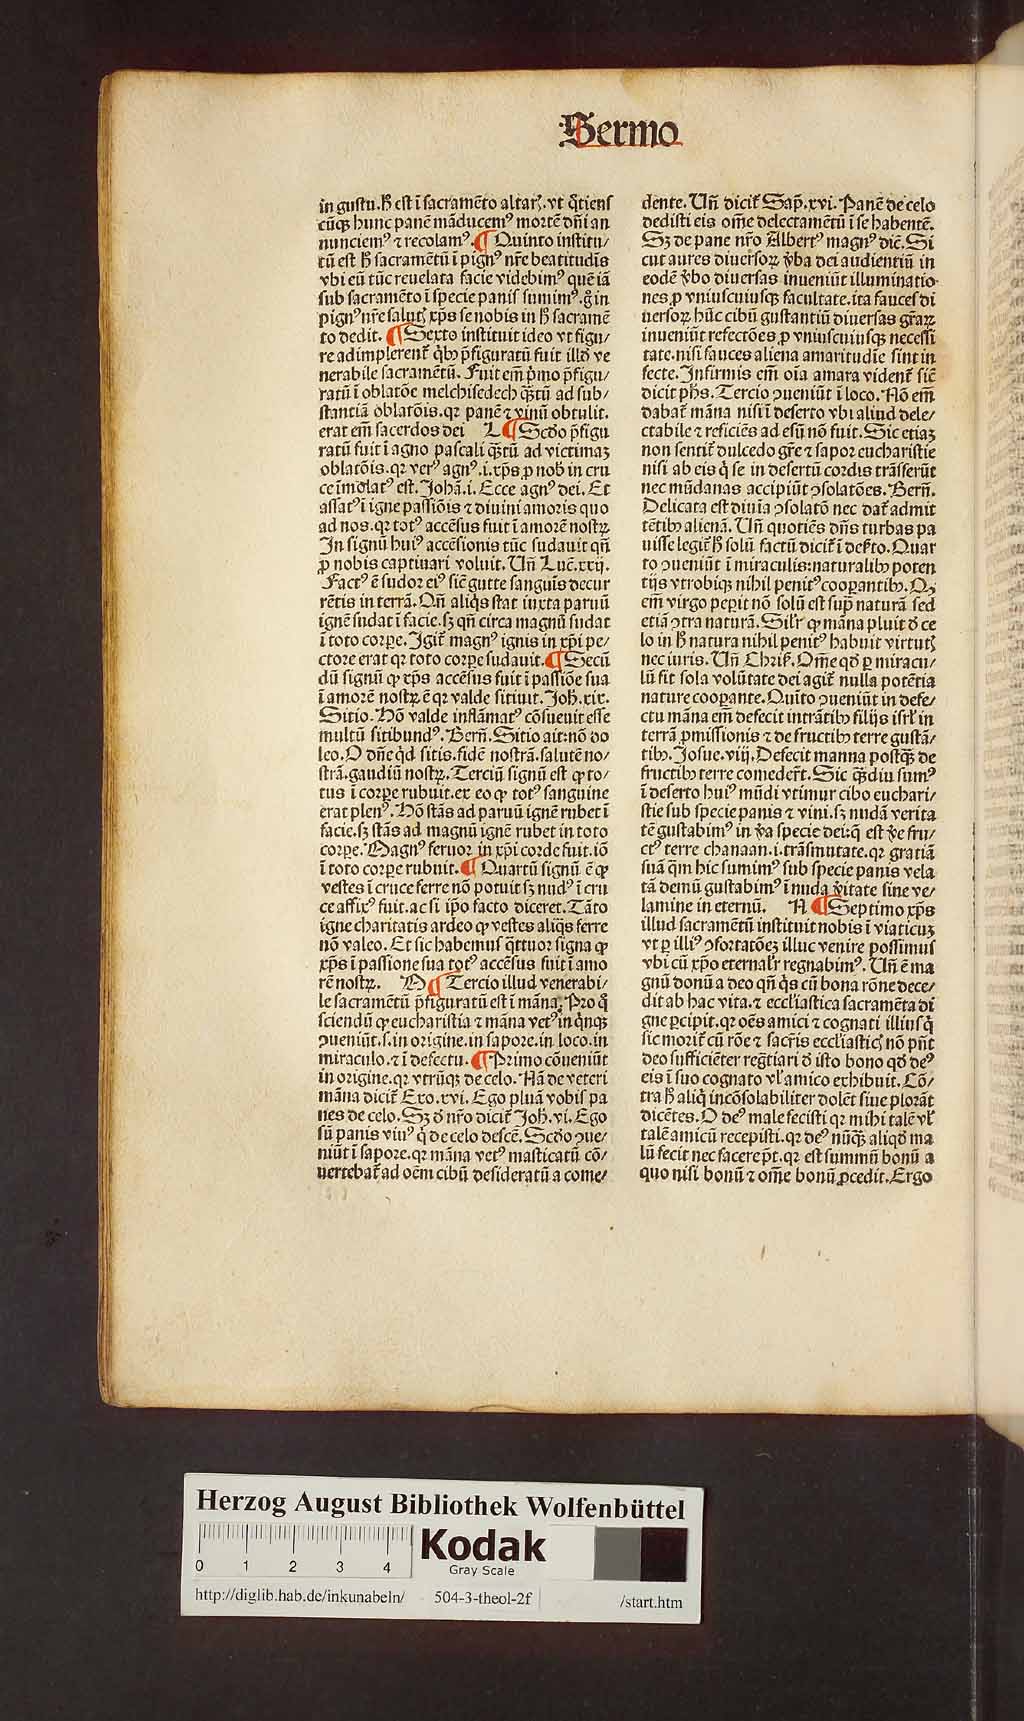 Sermo
in gustu. H̄ est ī sacramēto altarꝭ. vt q̄tiens
cūqꝫ hunc panē māducemꝰ mortē dn̄i an
nunciemꝰ ⁊ recolamꝰ. ¶ Quinto institu/
tū est h̄ sacramētū ī pignꝰ nr̄e beatitudīs
vbi eū tūc reuelata facie videbimꝰ quē iā
sub sacramēto ī specie panis sumimꝰ. g̊ in
pignꝰ nr̄e salutꝭ xp̄s se nobis in h̄ sacramē
to dedit. ¶ Sexto instituit ideo vt figu/
re adimplerent᷑ q̄bꝫ p̄figuratū fuit illḋ ve
nerabile sacramētū. Fuit em̄ p̄mo p̄figu/
ratū ī oblatōe melchisedech q̄ꝫtū ad sub/
stantiā oblatōis. qꝛ panē ⁊ vinū obtulit.
erat em̄ sacerdos dei L ¶ Scḋo p̄figu
ratū fuit ī agno pascali q̄ꝫtū ad victimaꝫ
oblatōis. qꝛ verꝰ agnꝰ .i. xp̄s ꝓ nob̄ in cru
ce īmolatꝰ est. Johā. i. Ecce agnꝰ dei. Et
assatꝰ ī igne passiōis ⁊ diuini amoris quo
ad nos. qꝛ totꝰ accēsus fuit ī amorē nostꝝ.
In signū huiꝰ accēsionis tūc sudauit qn̄
ꝓ nobis captiuari voluit. Vn̄ Luē. xxij.
Factꝰ ē sudor eiꝰ sic̄ gutte sanguīs decur
rētis in terrā. Qn̄ aliq̇s stat iuxta paruū
ignē sudat ī facie. sꝫ qn̄ circa magnū sudat
ī toto corꝑe. Igit᷑ magnꝰ ignis in xp̄i pe/
ctore erat qꝛ toto corꝑe sudauit. ¶ Secū
dū signū ꝙ xp̄s accēsus fuit ī passiōe sua
ī amorē nostꝝ ē qꝛ valde sitiuit. Joh̄. xix.
Sitio. Hō valde inflāmatꝰ cōsueuit esse
multū sitibundꝰ. Bern̄. Sitio ait: nō do
leo. O dn̄e q̇d sitis. fidē nostrā. salutē no/
strā. gaudiū nostꝝ. Terciū signū est ꝙ to/
tus ī corꝑe rubuit. ex eo ꝙ totꝰ sanguine
erat plenꝰ. Hō stās ad paruū ignē rubet ī
facie. sꝫ stās ad magnū ignē rubet in toto
corꝑe. Magnꝰ feruor in xp̄i corde fuit. iō
ī toto corꝑe rubuit. ¶ Quartū signū ē ꝙ
vestes ī cruce ferre nō potuit sꝫ nudꝰ ī cru
ce affixꝰ fuit. ac si ip̄o facto diceret. Tāto
igne charitatis ardeo ꝙ vestes aliq̇s ferre
nō valeo. Et sic habemus q̄ttuor signa ꝙ
xp̄s ī passione sua totꝰ accēsus fuit ī amo
rē nostꝝ. M ¶ Tercio illud venerabi/
le sacramētū p̄figuratū est ī māna. Pro q̊
sciendū ꝙ eucharistia ⁊ māna vetꝰ in q̇nqꝫ
ꝯueniūt. s. in origine. in sapore. in loco. in
miraculo. ⁊ ī defectu. ¶ Primo cōueniūt
in origine. qꝛ vtrūqꝫ de celo. Nā de veteri
māna dicit᷑ Exo. xvi. Ego pluā vobis pa
nes de celo. Sꝫ ḋ nr̄o dicit᷑ Joh̄. vi. Ego
sū panis viuꝰ q̇ de celo descē. Scḋo ꝯue/
niūt ī sapore. qꝛ māna vetꝰ masticatū cō/
uertebat᷑ ad oēm cibū desideratū a come/
dente. Vn̄ dicit᷑ Sap̄. xvi. Panē de celo
dedisti eis om̄e delectamētū ī se habentē.
Sꝫ de pane nr̄o Albertꝰ magnꝰ diē. Si
cut aures diuersoꝝ v̄ba dei audientiū in
eodē v̄bo diuersas inueniūt illuminatio
nes ꝓ vniuscuiusqꝫ facultate. ita fauces di
uersoꝝ hūc cibū gustantiū diuersas gr̄aꝝ
inueniūt refectōes ꝓ vniuscuiusqꝫ necessi
tate. nisi fauces aliena amaritudīe sint in
fecte. Infirmis em̄ oīa amara vident᷑ sic̄
dicit ph̄s. Tercio ꝯueniūt ī loco. Nō em̄
dabat᷑ māna nisi ī deserto vbi aliud dele/
ctabile ⁊ reficiēs ad esū nō fuit. Sic etiaꝫ
non sentit᷑ dulcedo gr̄e ⁊ sapor eucharistie
nisi ab eis q̇ se in desertū cordis trāsserūt
nec mūdanas accipiūt ꝯsolatōes. Bern̄.
Delicata est diuīa ꝯsolatō nec dat᷑ admit
tētibꝫ alienā. Vn̄ quotiēs dn̄s turbas pa
uisse legit᷑ h̄ solū factū dicit᷑ ī def̄to. Quar
to ꝯueniūt ī miraculis: naturalibꝫ poten
tijs vtrobiqꝫ nihil penitꝰ cooꝑantibꝫ. Qꝫ
em̄ virgo peꝑit nō solū est sup̄ naturā sed
etiā ꝯtra naturā. Silr̄ ꝙ māna pluit ḋ ce
lo in h̄ natura nihil penitꝰ habuit virtutꝭ
nec iuris. Vn̄ Chris̄. Om̄e qḋ ꝑ miracu/
lū fit sola volūtate dei agit᷑ nulla potētia
nature cooꝑante. Quīto ꝯueniūt in defe/
ctu māna em̄ defecit intrātibꝫ filijs isrl̄ in
terrā ꝓmissionis ⁊ de fructibꝫ terre gustā/
tibꝫ. Josue. viij. Defecit manna postq̄ꝫ de
fructibꝫ terre comeder̄t. Sic q̄ꝫdiu sumꝰ
ī deserto huiꝰ mūdi vtimur cibo euchari/
stie sub specie panis ⁊ vini. sꝫ nudā verita
tē gustabimꝰ in v̄a specie dei: q̄ est v̄e fru/
ctꝰ terre chanaan. i. trāsmutate. qꝛ gratiā
suā q̄m hic sumimꝰ sub specie panis vela
tā demū gustabimꝰ ī nuda v̄itate sine ve/
lamine in eternū. N ¶ Septimo xp̄s
illud sacramētū instituit nobis ī viaticuꝫ
vt ꝑ illiꝰ ꝯfortatōeꝫ illuc venire possimus
vbi cū xp̄o eternalr̄ regnabimꝰ. Vn̄ ē ma
gnū donū a deo qn̄ q̇s cū bona rōne dece/
dit ab hac vita. ⁊ eccl̄iastica sacramēta di
gne ꝑcipit. qꝛ oēs amici ⁊ cognati illius q̇
sic morit᷑ cū rōe ⁊ sacr̄is eccl̄iasticꝭ nō pn̄t
deo sufficiēter regr̄tiari ḋ isto bono qḋ deꝰ
eis ī suo cognato vl̄ amico exhibuit. Cō/
tra h̄ aliq̇ incōsolabiliter dolēt siue plorāt
dicētes. O deꝰ male fecisti qꝛ mihi talē vl̄
talē amicū recepisti. qꝛ deꝰ nūq̄ꝫ aliqḋ ma
lū fecit nec facere p̄t. qꝛ est summū bonū a
quo nisi bonū ⁊ om̄e bonū ꝓcedit. Ergo
Herzog August Bibliothek Wolfenbüttel
0 1 2 3 4
Kodak
Gray Scale
http://diglib.hab.de/inkunabeln/ 504-3-theol-2f /start.htm